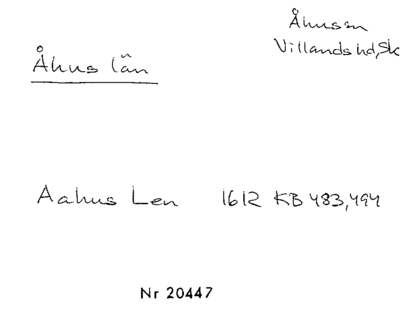 Åhus län
Åhus sn
Villands hd, Sk
Aahus Len 1612 KB 483, 494
Nr 20447